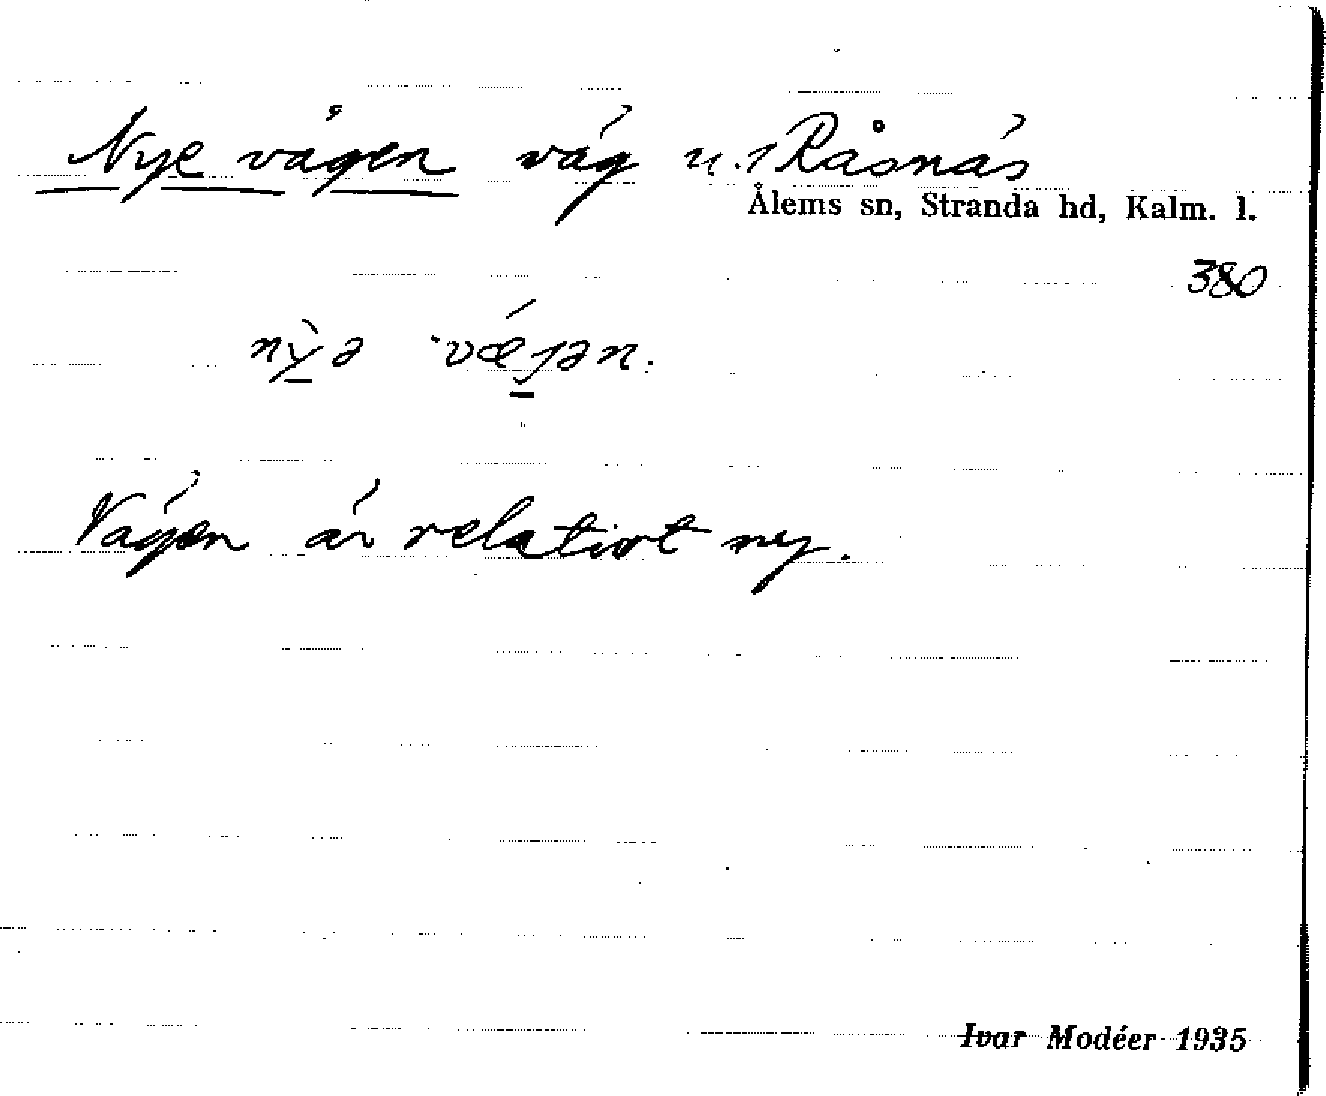 Nye vägen väg u. Råsnäs
Ålems sn, Stranda hd, Kalm. l.
380
nỳə væjən.
Vägen är relativt ny.
Ivar Modéer 1935